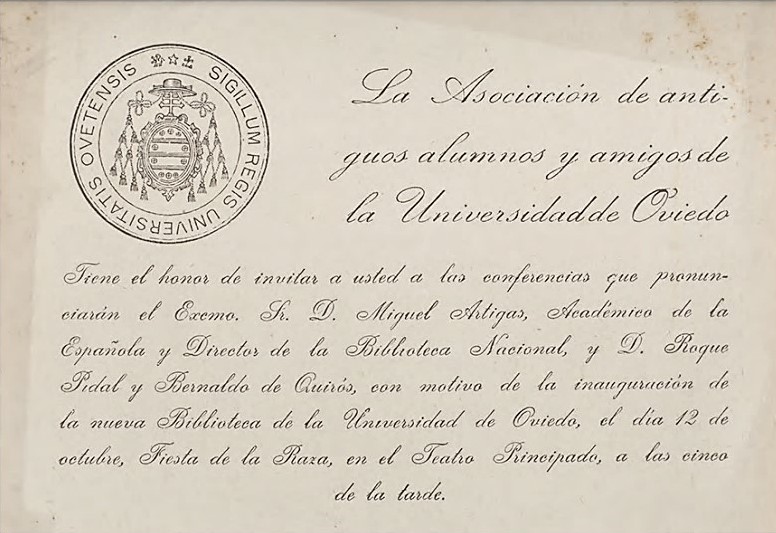 SIGILLUM REGIS UNIVERSITATIS OVETENSIS
La Asociación de anti-
guos alumnos y amigos de
la Universidad de Oviedo
Tiene el honor de invitar a usted a las conferencias que pronun-
ciarán el Excmo. Sr. D. Miguel Artigas, Académico de la
Española y Director de la Biblioteca Nacional, y D. Roque
Pidal y Bernaldo de Quirós, con motivo de la inauguración de
la nueva Biblioteca de la Universidad de Oviedo, el día 12 de
octubre, Fiesta de la Raza, en el Teatro Principado, a las cinco
de la tarde.